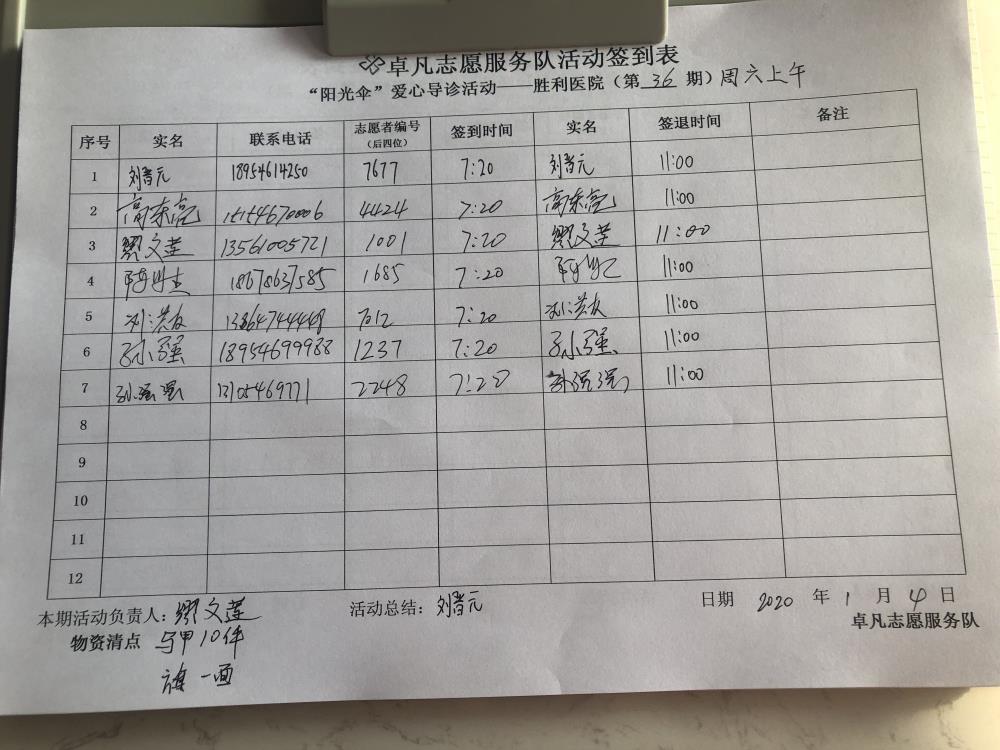 卓凡志愿服务队活动签到表
“阳光伞”爱心导诊活动——胜利医院（第 36 期）周六上午
序号 实名 联系电话 志愿者编号（后四位） 签到时间 实名 签退时间 备注
1 刘晋元 18954614250 7677 7:20 刘晋元 11:00
2 高东亮 15154670006 4424 7:20 高东亮 11:00
3 缪文莲 13561005721 1001 7:20 缪文莲 11:00
4 18678637585 1685 7:20 11:00
5 7012 7:20 11:00
6 孙小强 18954699988 1237 7:20 孙小强 11:00
7 孙强强 2248 7:20 孙强强 11:00
8
9
10
11
12
本期活动负责人：缪文莲 活动总结：刘晋元 日期 2020 年 1 月 4 日
卓凡志愿服务队
物资清点 马甲10件
旗一面